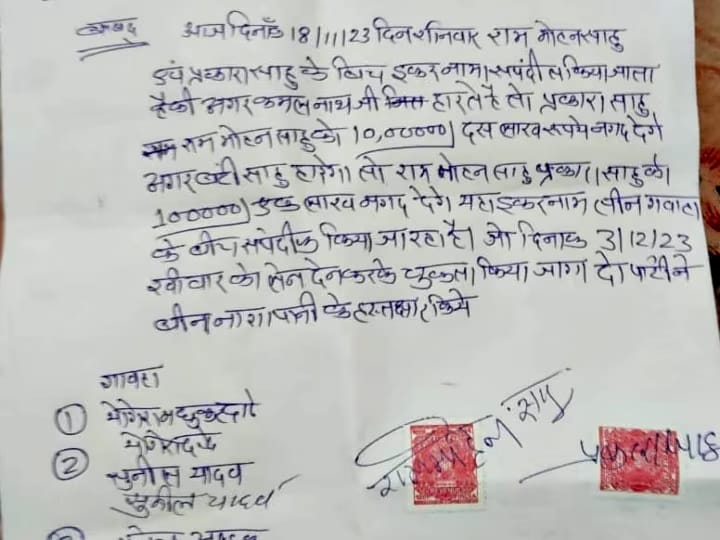 आज दिनाँक 18/11/23 दिन शनिवार राम मोहन साहु
एवं प्रकाश साहु के बिच इकरनामा संपंदीत किया जाता
है की अगर कमल नाथ जी हारते है तो प्रकाश साहु
राम मोहन साहु को 10,00000/ दस लाख रूपये नगद देगे
अगर बंटी साहु हारेगे। तो राम मोहन साहु प्रकाश साहु को
100000/ एक लाख नगद देगे यहा इकरनाम तीन गवाहा
के बीच संपंदीत किया जा रहा है। जो दिनाक 3/12/23
रवीवार को लेन देन करके चुकता किया जागा दो पार्टी ने
बीन नाशापानी के हस्ताक्षर किये
गावहा
①
② सुनील यादव
सुनील यादव
राममोहन साहु
प्रकाश साहु